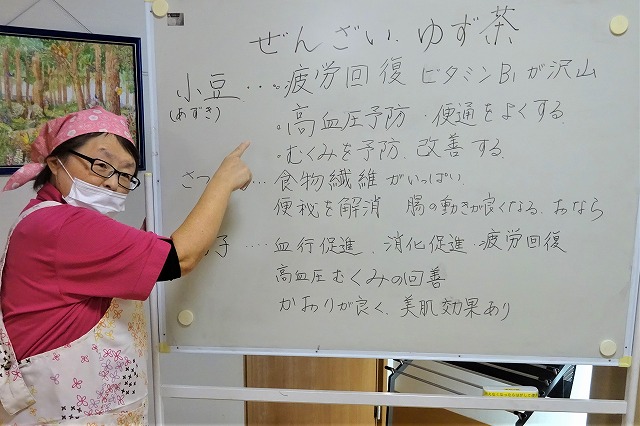 ぜんざい.ゆず茶
小豆…。疲労回復 ビタミンB1が沢山
(あずき)
。高血圧予防・便通をよくする。
。むくみを予防.改善する。
さつ…食物繊維がいっぱい.
便秘を解消 腸の動きが良くなる.おなら
子‥‥血行促進.消化促進・疲労回復
高血圧むくみの回善
かおりが良く.美肌効果あり